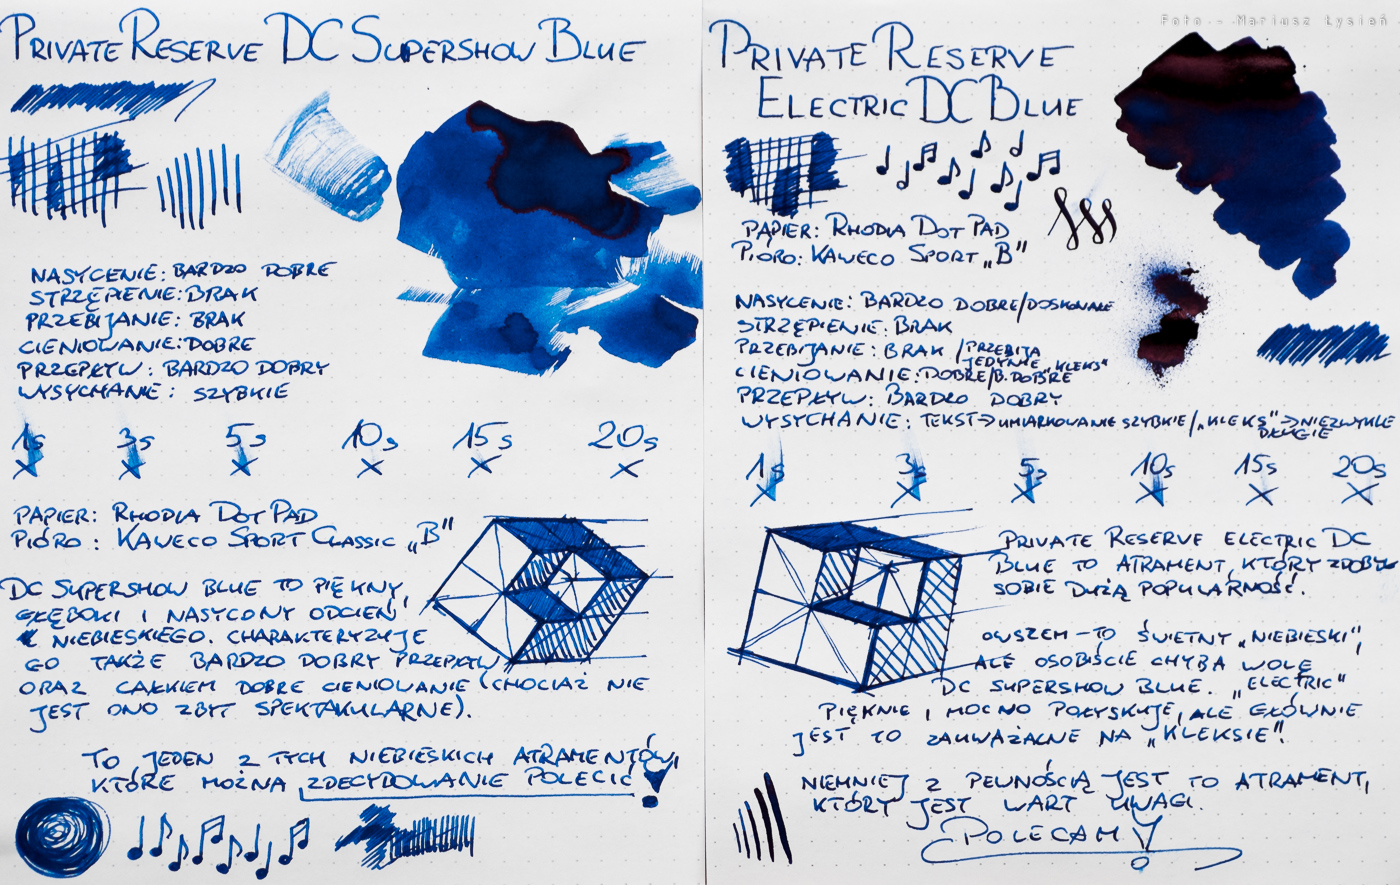 Foto - Mariusz Łysień
PRIVATE RESERVE DC SUPERSHOW BLUE
NASYCENIE: BARDZO DOBRE
STRZĘPIENIE: BRAK
PRZEBIJANIE: BRAK
CIENIOWANIE: DOBRE
PRZEPŁYW: BARDZO DOBRY
WYSYCHANIE: SZYBKIE
1s 3s 5s 10s 15s 20s
PAPIER: RHODIA DOT PAD
PIÓRO: KAWECO SPORT CLASSIC „B"
DC SUPERSHOW BLUE TO PIĘKNY,
GŁĘBOKI I NASYCONY ODCIEŃ
NIEBIESKIEGO. CHARAKTERYZUJE
GO TAKŻE BARDZO DOBRY PRZEPŁYW
ORAZ CAŁKIEM DOBRE CIENIOWANIE (CHOCIAŻ NIE
JEST ONO ZBYT SPEKTAKULARNE).
TO JEDEN Z TYCH NIEBIESKICH ATRAMENTÓW,
KTÓRE MOŻNA ZDECYDOWANIE POLECIĆ!
PRIVATE RESERVE
ELECTRIC DC BLUE
PAPIER: RHODIA DOT PAD
PIÓRO: KAWECO SPORT „B"
NASYCENIE: BARDZO DOBRE/DOSKONAŁE
STRZĘPIENIE: BRAK
PRZEBIJANIE: BRAK /PRZEBIJA
JEDYNIE „KLEKS"
CIENIOWANIE: DOBRE/B. DOBRE
PRZEPŁYW: BARDZO DOBRY
WYSYCHANIE: TEKST→UMIARKOWANIE SZYBKIE/„KLEKS"→NIEZWYKLE
DŁUGIE
1s 3s 5s 10s 15s 20s
PRIVATE RESERVE ELECTRIC DC
BLUE TO ATRAMENT, KTÓRY ZDOBYŁ
SOBIE DUŻĄ POPULARNOŚĆ.
OWSZEM - TO ŚWIETNY „NIEBIESKI",
ALE OSOBIŚCIE CHYBA WOLĘ
DC SUPERSHOW BLUE. „ELECTRIC"
PIĘKNIE I MOCNO POŁYSKUJE, ALE GŁÓWNIE
JEST TO ZAUWAŻALNE NA „KLEKSIE".
NIEMNIEJ Z PEWNOŚCIĄ JEST TO ATRAMENT,
KTÓRY JEST WART UWAGI.
POLECAM!